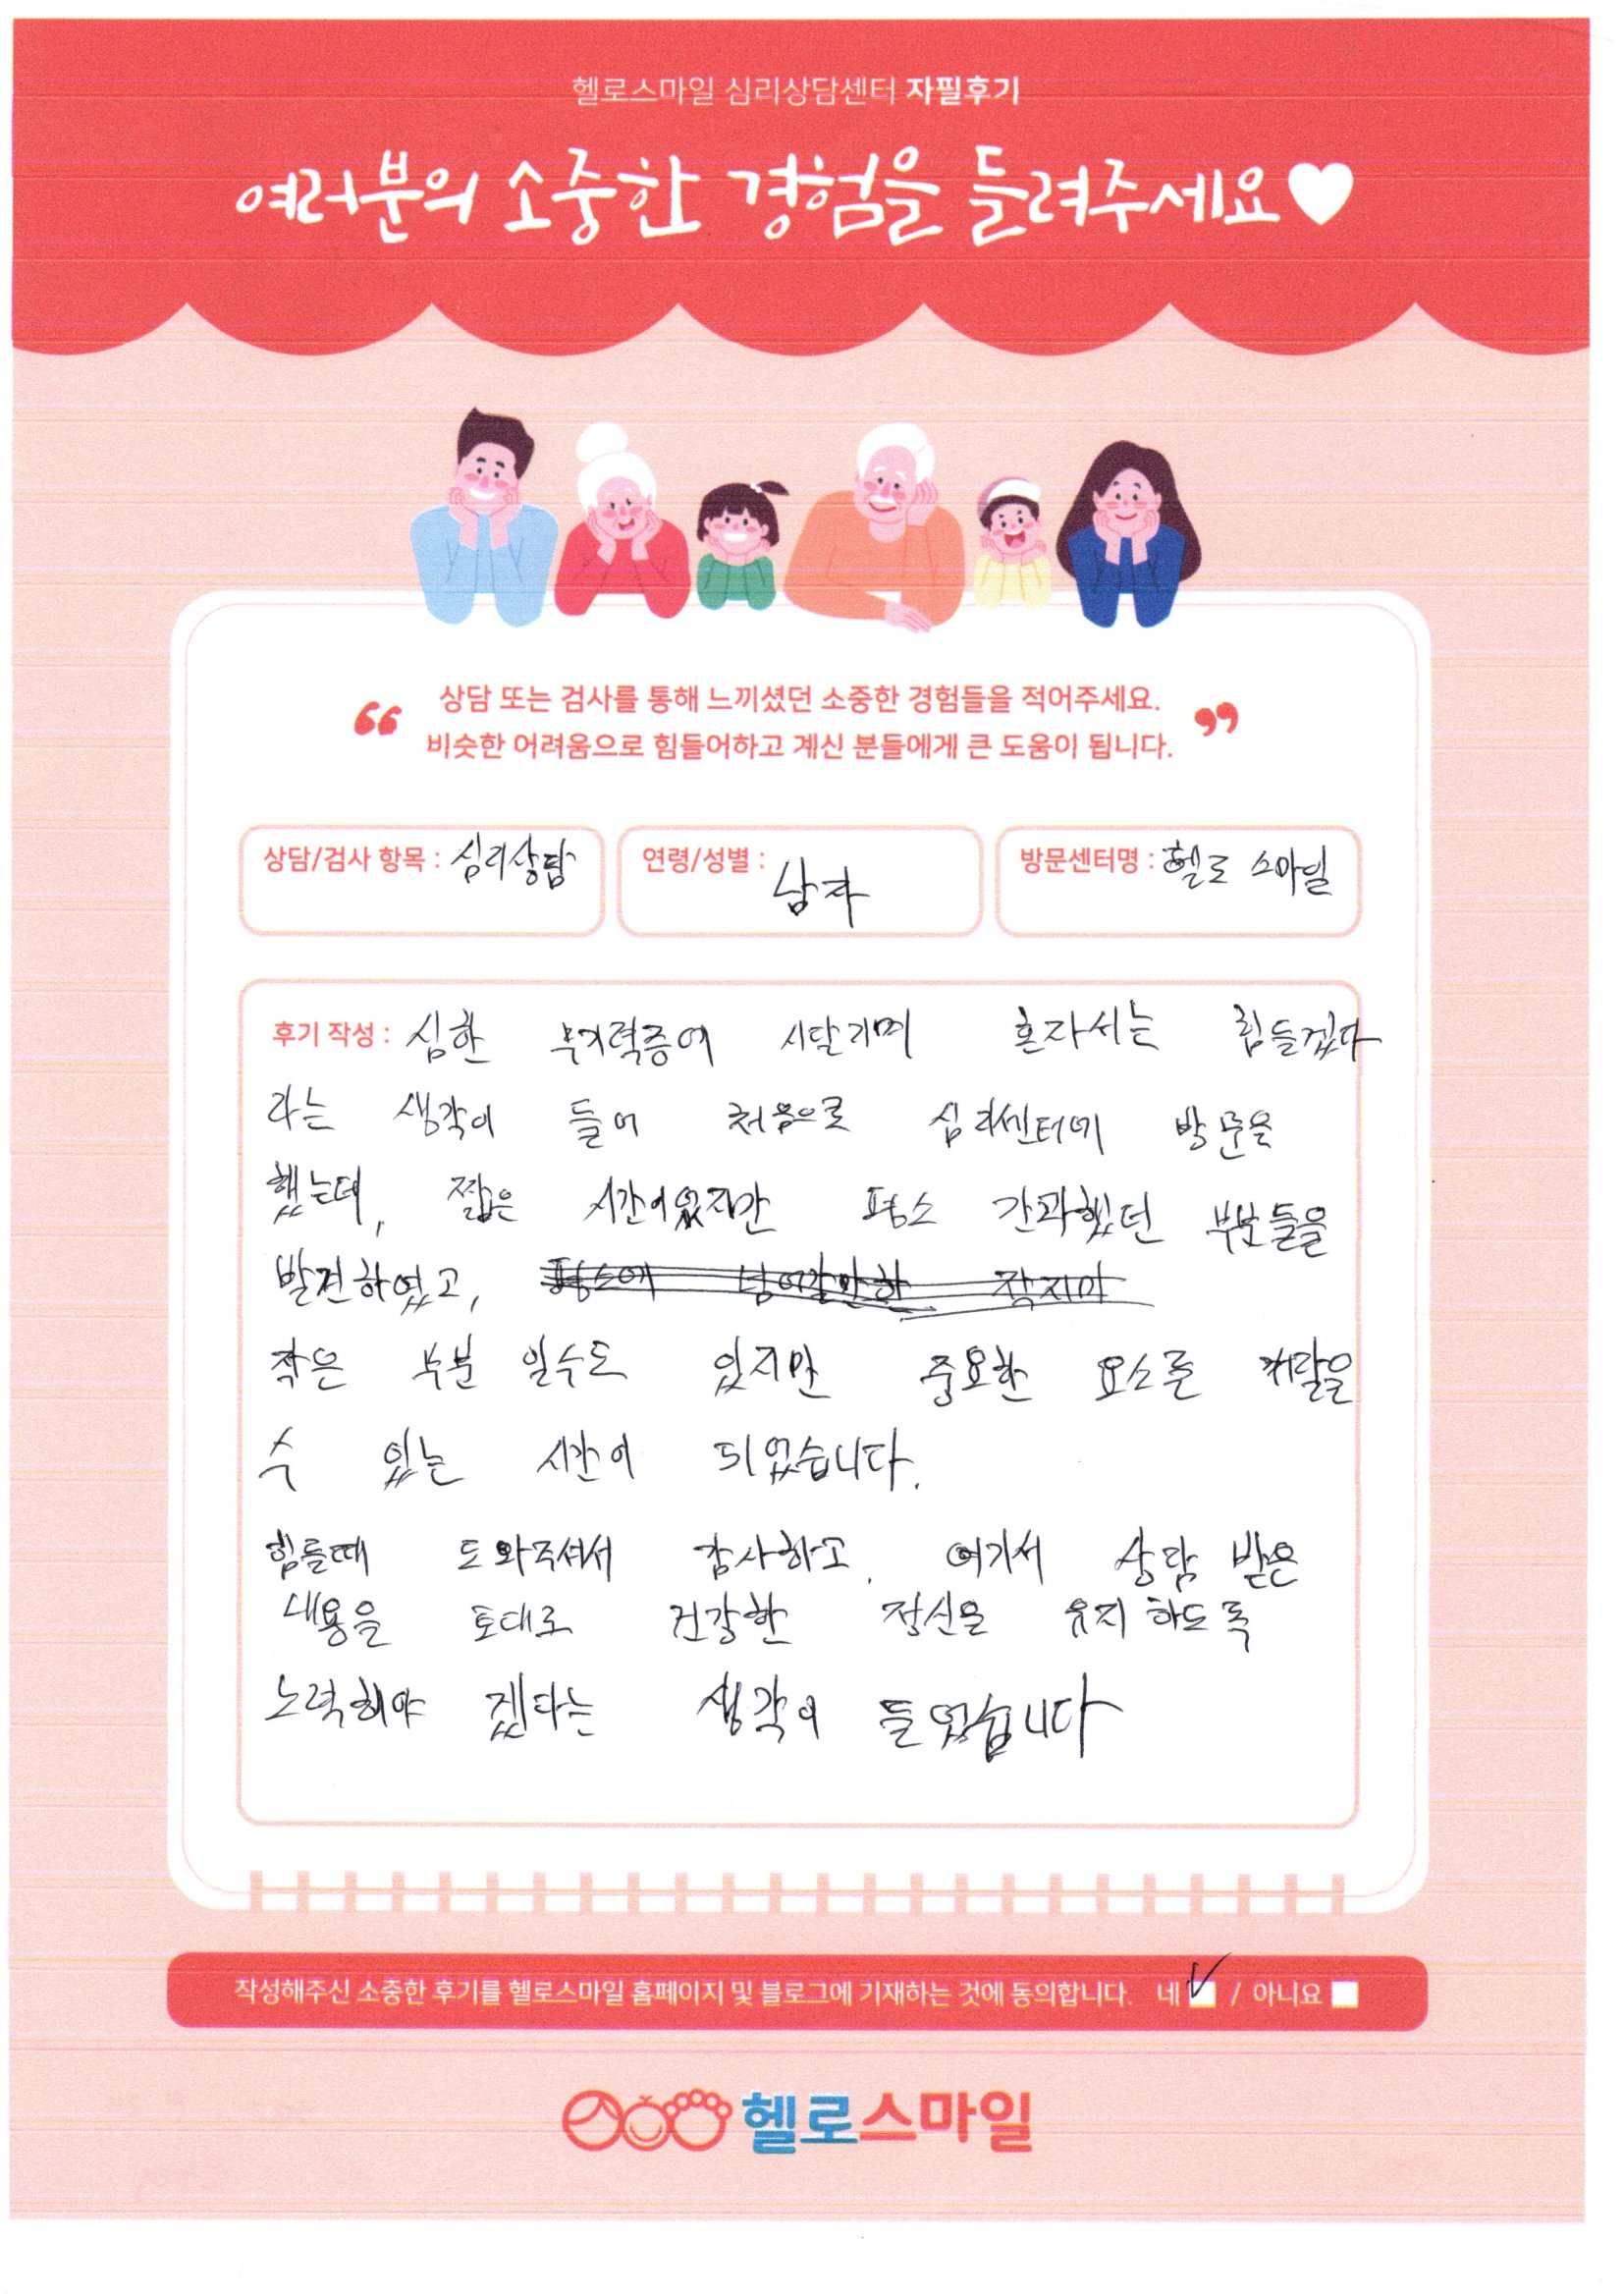 헬로스마일 심리상담센터 자필후기
여러분의 소중한 경험을 들려주세요
상담 또는 검사를 통해 느끼셨던 소중한 경험들을 적어주세요.
비슷한 어려움으로 힘들어하고 계신 분들에게 큰 도움이 됩니다.
상담/검사 항목 : 심리상담
연령/성별 : 남자
방문센터명 : 헬로 스마일
후기 작성 : 심한 무기력증에 시달리며 혼자서는 힘들겠다
라는 생각이 들어 처음으로 심리센터에 방문을
했는데, 짧은 시간이었지만 평소 간과했던 부분들을
발견하였고, 평소에 넘어갈만한 작지만
작은 부분 일수도 있지만 중요한 요소를 깨달을
수 있는 시간이 되었습니다.
힘들때 도와주셔서 감사하고, 여기서 상담 받은
내용을 토대로 건강한 정신을 유지 하도록
노력해야 겠다는 생각이 들었습니다
작성해주신 소중한 후기를 헬로스마일 홈페이지 및 블로그에 기재하는 것에 동의합니다. 네 / 아니요
헬로스마일